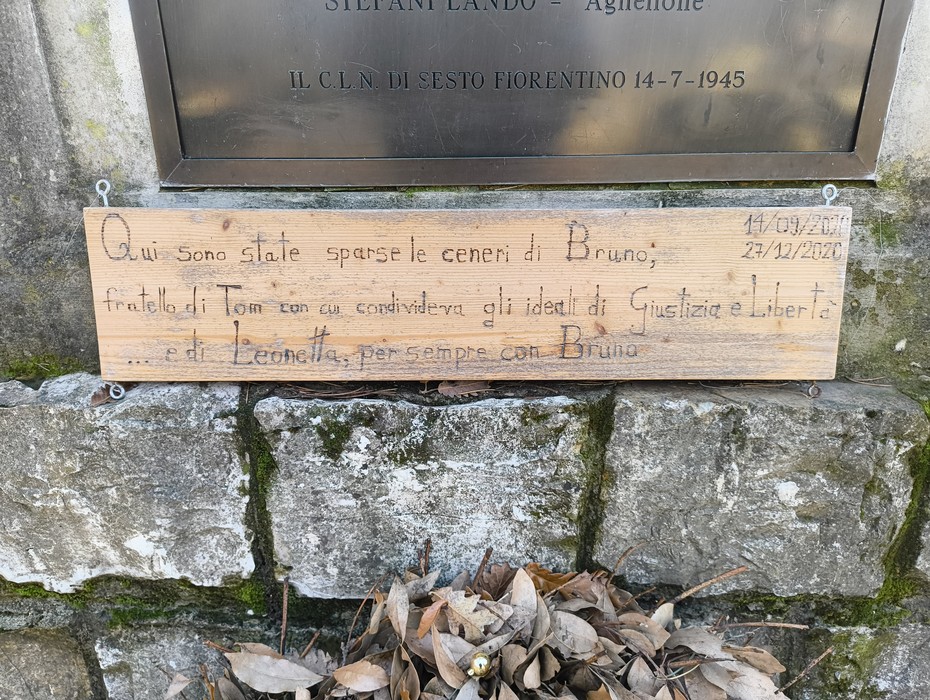 STEFANI LANDO - "Agnellone"
IL C.L.N. DI SESTO FIORENTINO 14-7-1945
Qui sono state sparse le ceneri di Bruno, 14/09/2020
27/12/2020
fratello di Tom con cui condivideva gli ideali di Giustizia e Libertà
... e di Leonetta, per sempre con Bruno